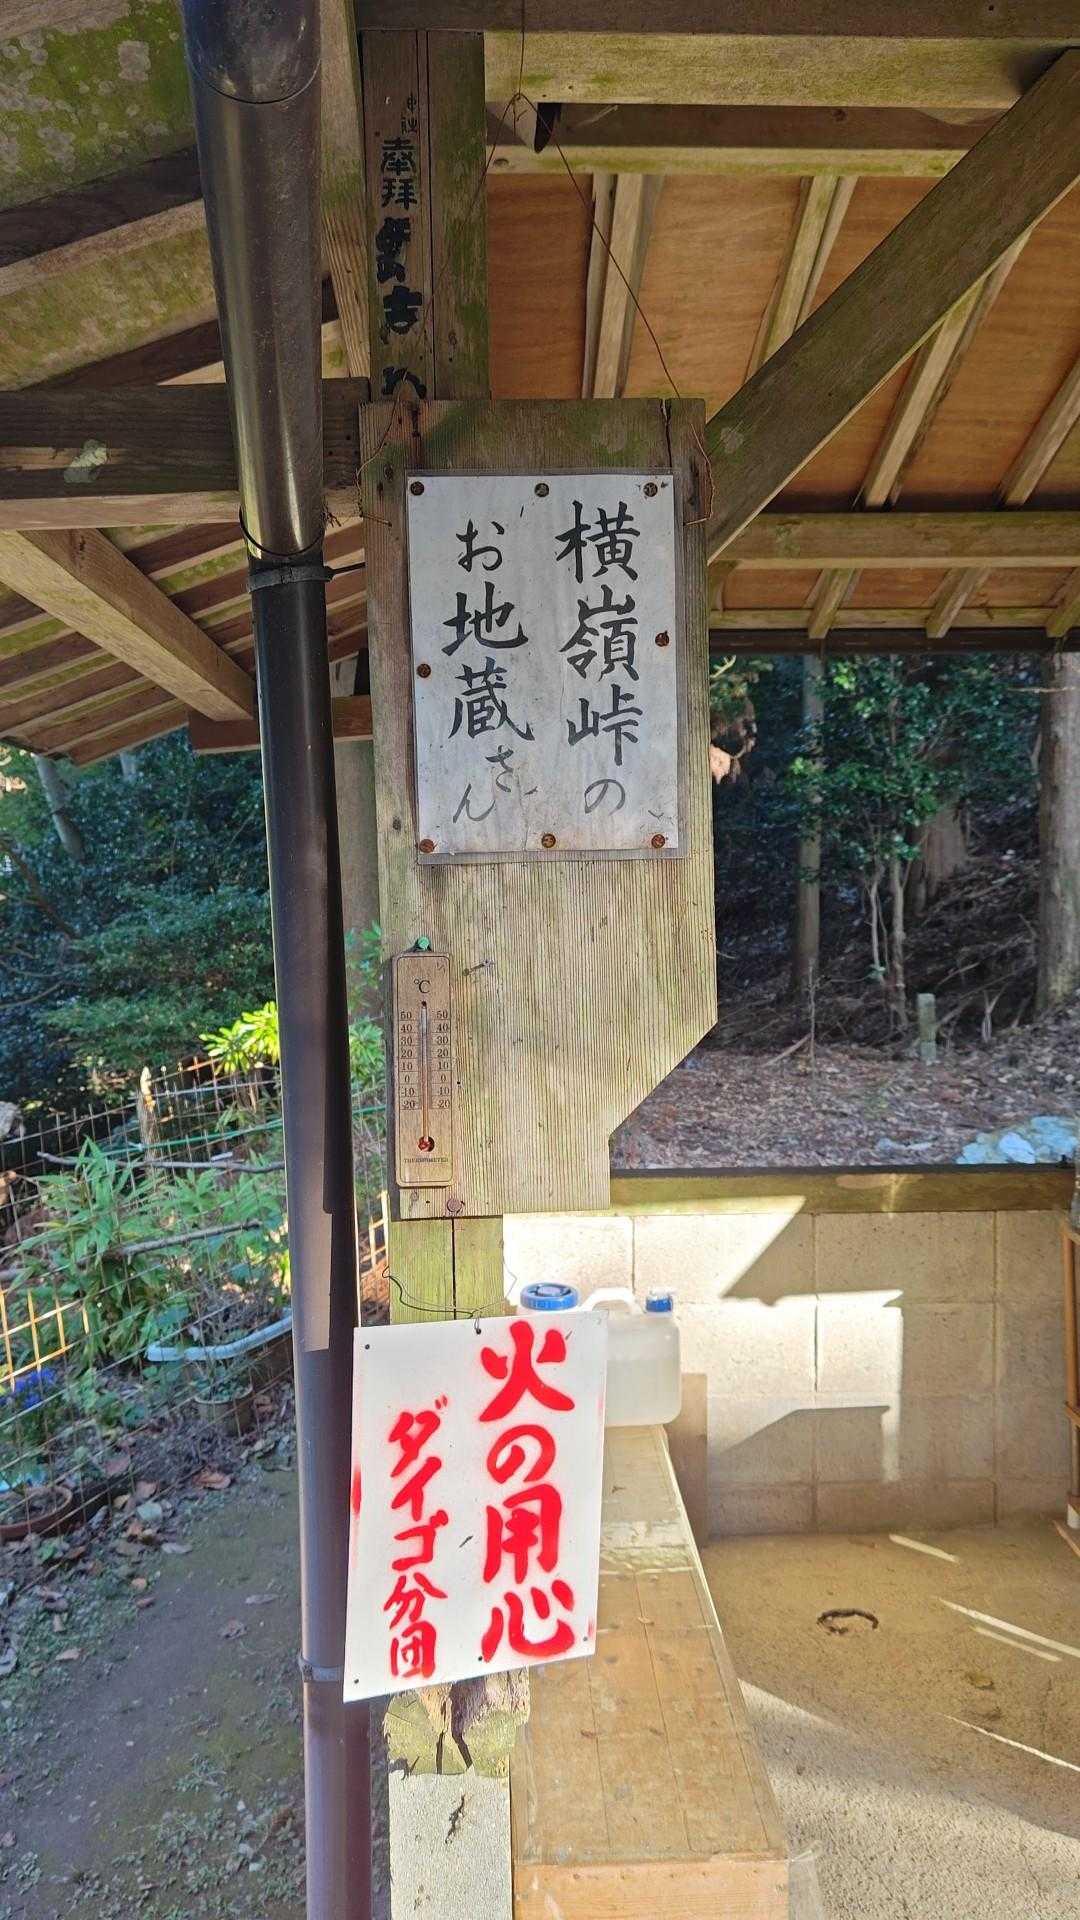 奉拝
横嶺峠の
お地蔵さん
℃
50 50
40 40
30 30
20 20
10 10
0 0
10 10
20 20
THERMOMETER
火の用心
ダイゴ分団